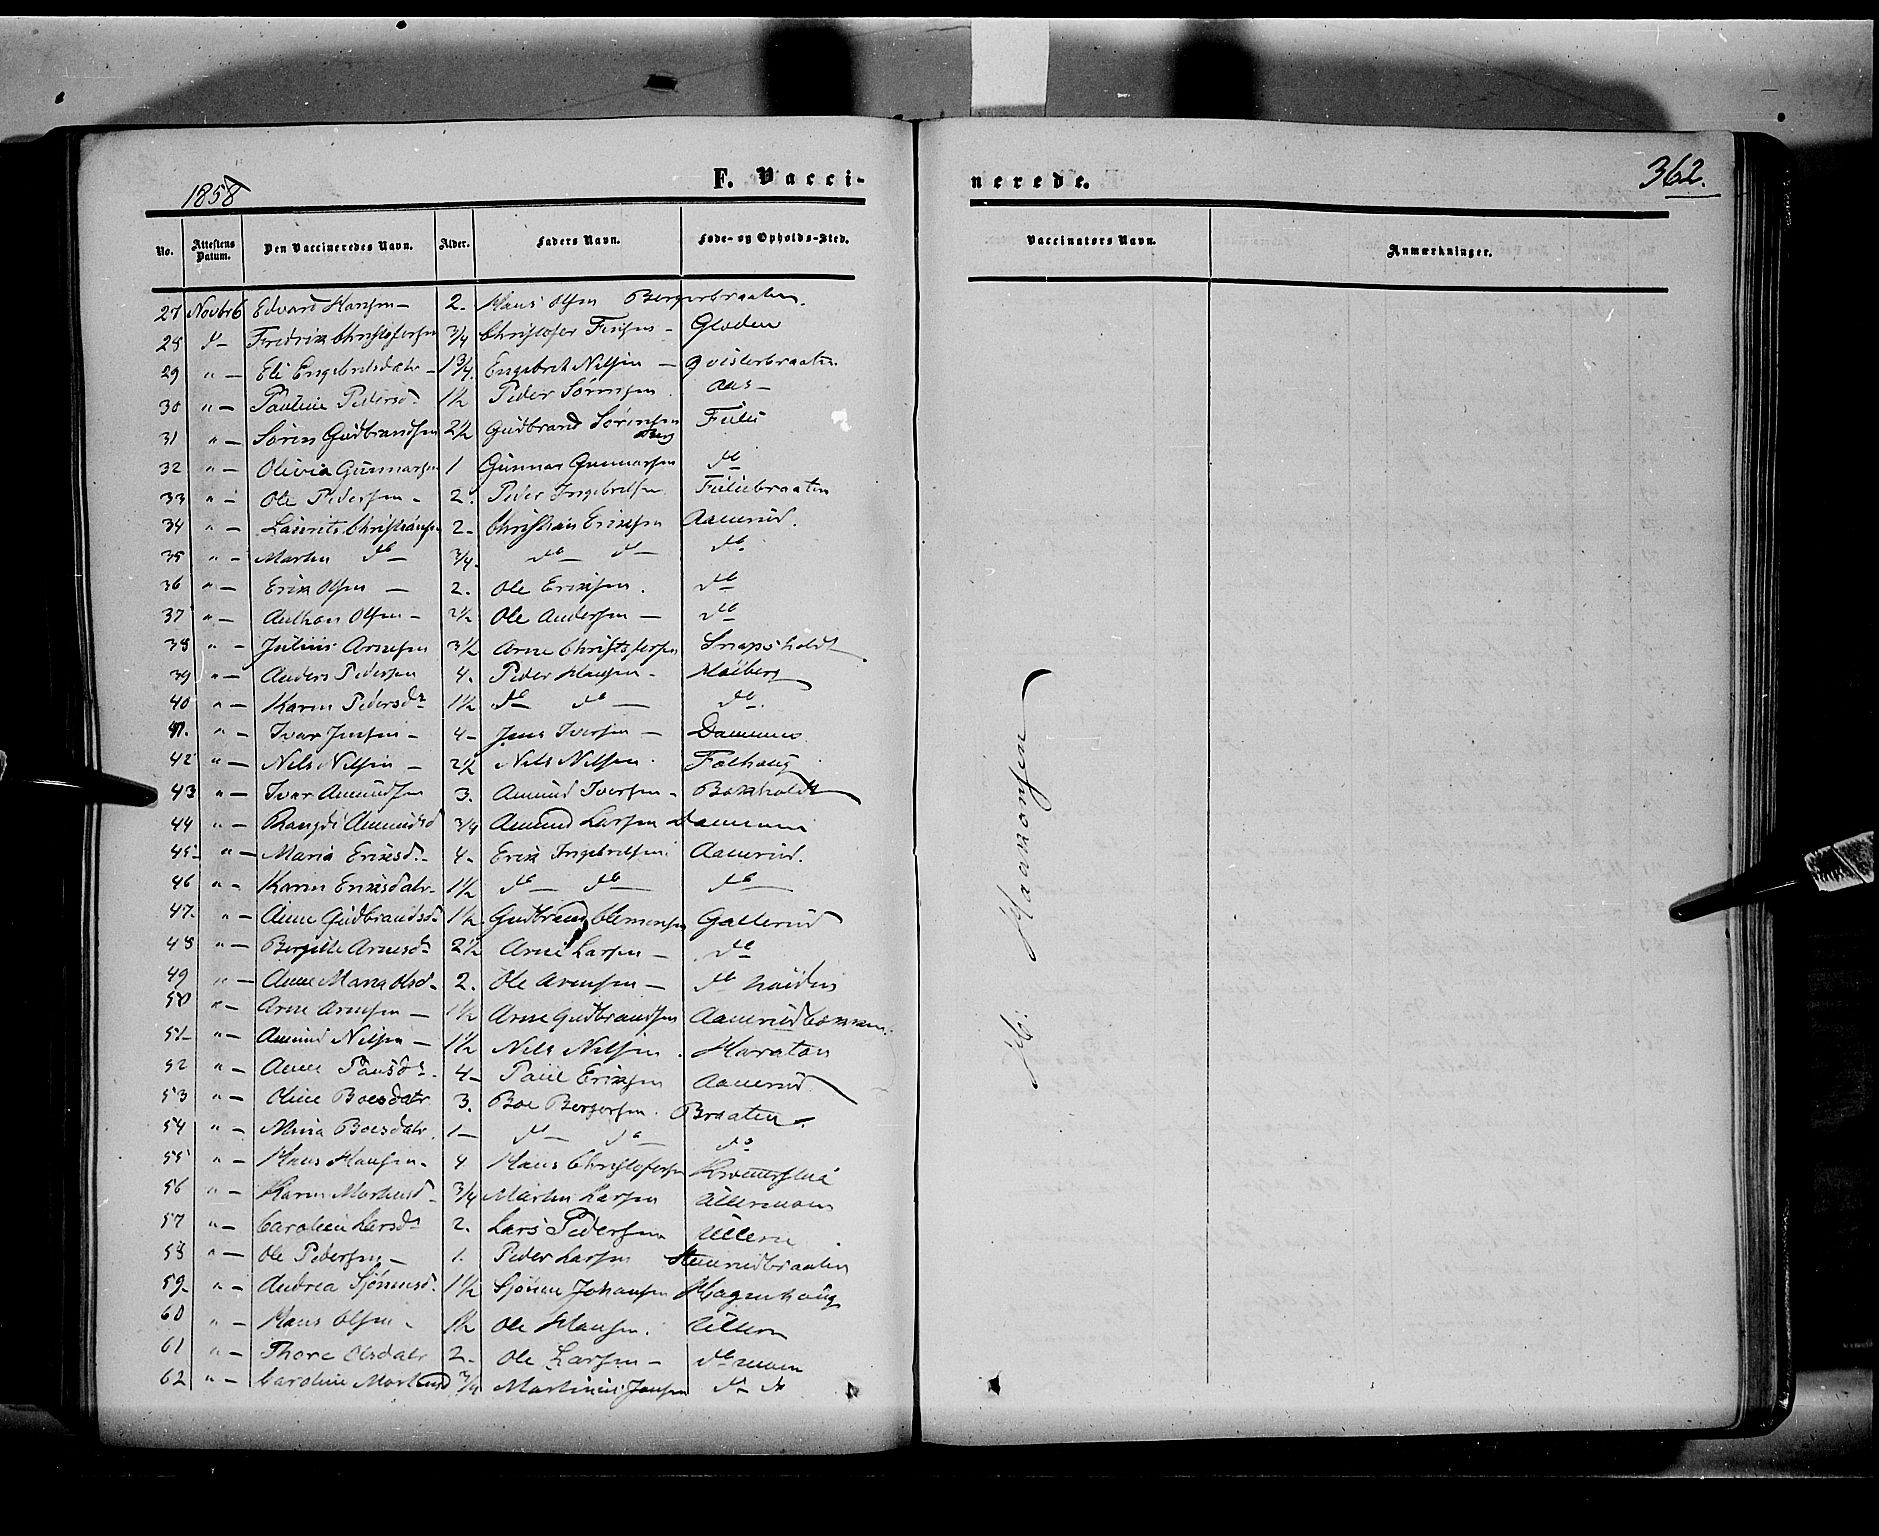 1858
F. Vacci-
nerede.
362.
No. Attestens Datum. Den Vaccineredes Navn. Alder. Faders Navn. Føde- og Opholds-Sted.
Vaccinatørs Navn. Anmærkninger.
27 Novbr 6 Edvard Hansen - 2. Hans Olsen Bergerbraaten.
28 do - Fredrik Christofersen 3/4 Christofer - Gloden
29 " - Eli Engebretsdatr - 1 3/4. Engebret Nilsen - Qvisterbraaten
30 " - Pauline Pedersd. 1 1/2 Peder Sørensen. Aas -
31 " - Søren Gudbrandsen 2 1/2 Gudbrand Sørensen
32 " - Olivia Gunnarsen 1 Gunnar Gunnarsen do
33 " - Ole Pedersen - 2. Peder Ingebretsen.
34 " - Laurits Christiansen 2 - Christian Eriksen Aamrud.
35 " - Martin do - 3/4. do - do - do.
36 " - Erik Olsen - 2. Ole Eriksen. do
37 " - Anthon Olsen - 2 1/2 Ole Andersen - do
38 " - Julius Arnesen 3 1/2 Arne Christofersen Snapsholdt
39 " - Anders Pedersen 4. Peder Hansen - Høiberg
40 " - Karen Pedersdr 1 1/2 do do - do.
41. " - Ivar Jensen - 4 - Jens Iversen -
42 " - Nils Nilsen - 2 1/2 Nils Nilsen.
43 " - Ivar Amundsen 3. Amund Iversen - Bokholdt
44 " - Rangdi Amundsd 3/4 Amund Larsen
45 - " - Maria Eriksd. - 4 - Erik Ingebretsen. Aamrud.
46 " - Karen Eriksdatr - 1 1/2 do - do - do -
47. " - Anne Gudbrandsd 1 1/2. Gudbrand Clemensen Gallerud
48 " - Bergitte Arnesdr 2 1/2 Arne Larsen - do
49 " - Anne Maria Olsd - 2. Ole Arnesen - do
50 " - Arne Arnesen - 1 1/2 Arne Gudbrandsen
51 - " - Amund Nilsen - 1 1/2 Nils Nilsen. Haraton
52 " - Anne Paulsdr. 4 - Paul Eriksen Aamrud
53 " - Oline Boesdatr 3. Boe Bergersen. Braaten.
54 " - Mina Boesdatr. 1 - do - do - do
55 " - Hans Hansen. 4 Hans Christofersen
56 " - Karen Martinsd - 3/4 Martin Larsen Ullernmoen
57 " - Caroline Larsdr 2. Lars Pedersen Ullern
58 " - Ole Pedersen - 1. Peder Larsen
59 - " - Andrea Sjønnesd. 1 1/2 Sjønne Johansen Hagenhaug
60 " - Hans Olsen - 1 1/2 Ole Hansen. Ullern
61 " - Thore Olsdatr 2 - Ole Larsen - do moen
62 " - Caroline Martinsd 3/4 Martinius Jansen do do
H. Haakonsen